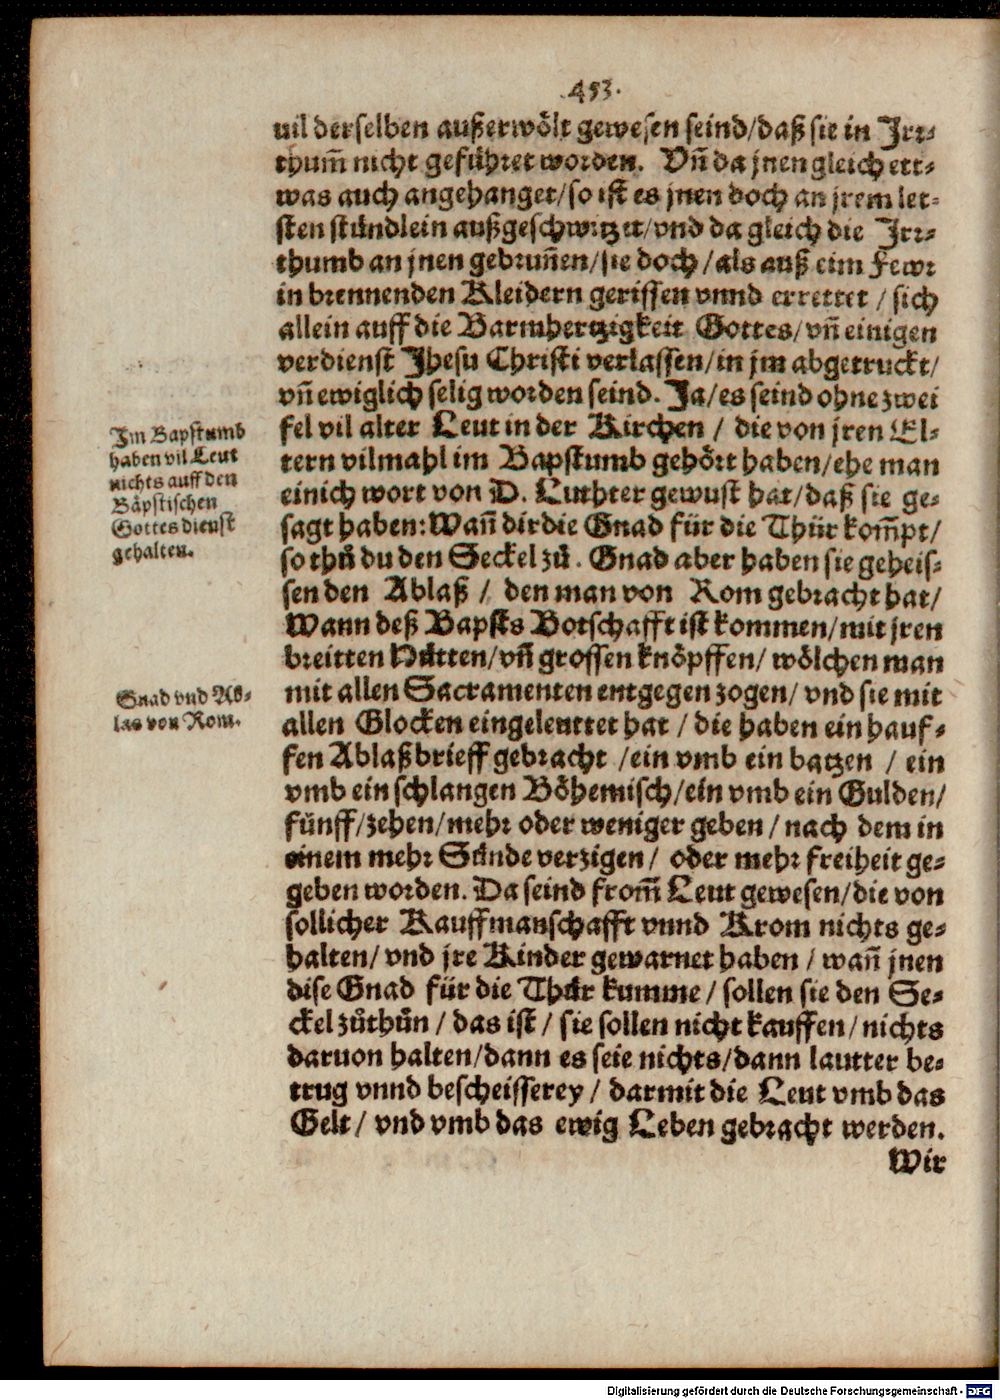 453.
vil derselben außerwölt gewesen seind/daß sie in Irr⸗
thum̃ nicht geführet worden. Vñ da jnen gleich ett⸗
was auch angehanget/so ist es jnen doch an jrem let⸗
sten stündlein außgeschwitzet/vnd da gleich die Irr⸗
thumb an jnen gebrun̄en/sie doch/als auß eim Fewr
in brennenden Kleidern gerissen vnnd errettet / sich
allein auff die Barmhertzigkeit Gottes/vñ einigen
verdienst Jhesu Christi verlassen/in jm abgetruckt/
vñ ewiglich selig worden seind. Ja/es seind ohne zwei
fel vil alter Leut in der Kirchen / die von jren El⸗
tern vilmahl im Bapstumb gehört haben/ehe man
einich wort von D. Luthter gewust hat/daß sie ge⸗
sagt haben: Wañ dir die Gnad für die Thür kom̃pt/
so thů du den Seckel zů. Gnad aber haben sie geheis⸗
sen den Ablaß / den man von Rom gebracht hat/
Wann deß Bapsts Botschafft ist kommen/mit jren
breitten Hütten/vñ grossen knöpffen/ wölchen man
mit allen Sacramenten entgegen zogen/ vnd sie mit
allen Glocken eingeleuttet hat / die haben ein hauf⸗
fen Ablaßbrieff gebracht /ein vmb ein batzen / ein
vmb ein schlangen Böhemisch/ein vmb ein Gulden/
fünff/zehen/mehr oder weniger geben / nach dem in
einem mehr Sünde verzigen / oder mehr freiheit ge⸗
geben worden. Da seind from̃ Leut gewesen/die von
sollicher Kauffmanschafft vnnd Krom nichts ge⸗
halten/ vnd jre Kinder gewarnet haben / wañ jnen
dise Gnad für die Thür kumme / sollen sie den Se⸗
ckel zůthůn / das ist / sie sollen nicht kauffen/ nichts
daruon halten/dann es seie nichts/dann lautter be⸗
trug vnnd bescheisserey / darmit die Leut vmb das
Gelt / vnd vmb das ewig Leben gebracht werden.
Wir
Im Bapstumb
haben vil Leut
nichts auff den
Bäpstischen
Gottes dienst
gehalten.
Gnad vnd Ab⸗
las von Rom.
Digitalisierung gefördert durch die Deutsche Forschungsgemeinschaft - DFG